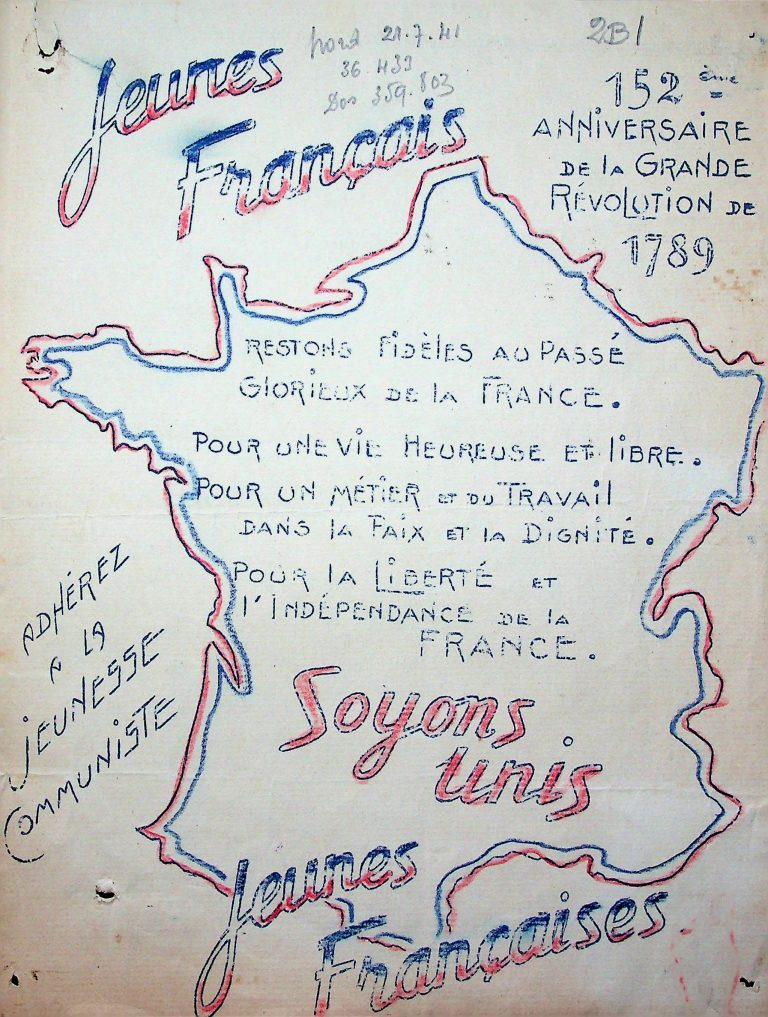 2B1
21.7.41
36.433
Dos 359.803
Jeunes
Français
152 ème
ANNIVERSAIRE
DE LA GRANDE
RÉVOLUTION DE
1789
RESTONS FIDÈLES AU PASSÉ
GLORIEUX DE LA FRANCE.
POUR UNE VIE HEUREUSE ET LIBRE.
POUR UN MÉTIER ET DU TRAVAIL
DANS LA PAIX ET LA DIGNITÉ.
POUR LA LIBERTÉ ET
L'INDÉPENDANCE DE LA
FRANCE.
ADHÉREZ
A LA
JEUNESSE
COMMUNISTE
Soyons
unis
Jeunes
Françaises